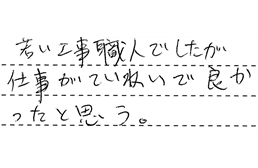 若い工事職人でしたが
仕事がていねいで良か
ったと思う。